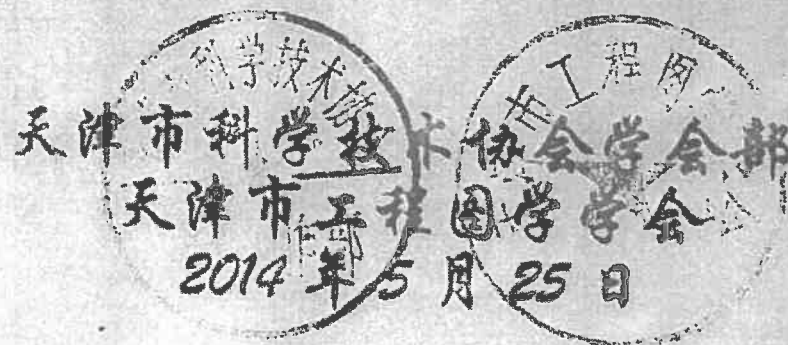 天津市科学技术协会学会部
天津市工程图学学会
2014年5月25日